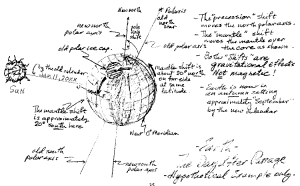 new north
polar axis
* Polaris
old north
star
new north
old polar ice cap.
old polar axis
by the old calendar
Jan. 11, 20XX
Sun
mantle shift is
about 20° north
on far side
at same
latitude.
The mantle shift
is approximately
20° south here
New 0° Meridian
old south
polar axis
new south
polar axis
- The "precession" shift
moves the north polar axis.
- The "mantle" shift
moves the mantle over
the core as shown.
- Both "shifts" are
gravitational effects
Not magnetic!
- Earth is now in
an autumn setting
approximately September
by the new calendar
Earth
The Day After Passage
- Hypothetical Example only -